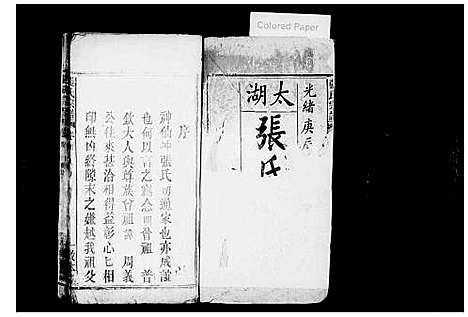 Colored Paper
光緒庚辰
太湖
張氏
序
神仙冲張氏易通家也亦成誼
也何以言之窩念四曾祖 普
欽大人與尊族曾祖 周義
公往來甚洽相得益彰心匕相
印無凶終隙末之嫌越我祖父